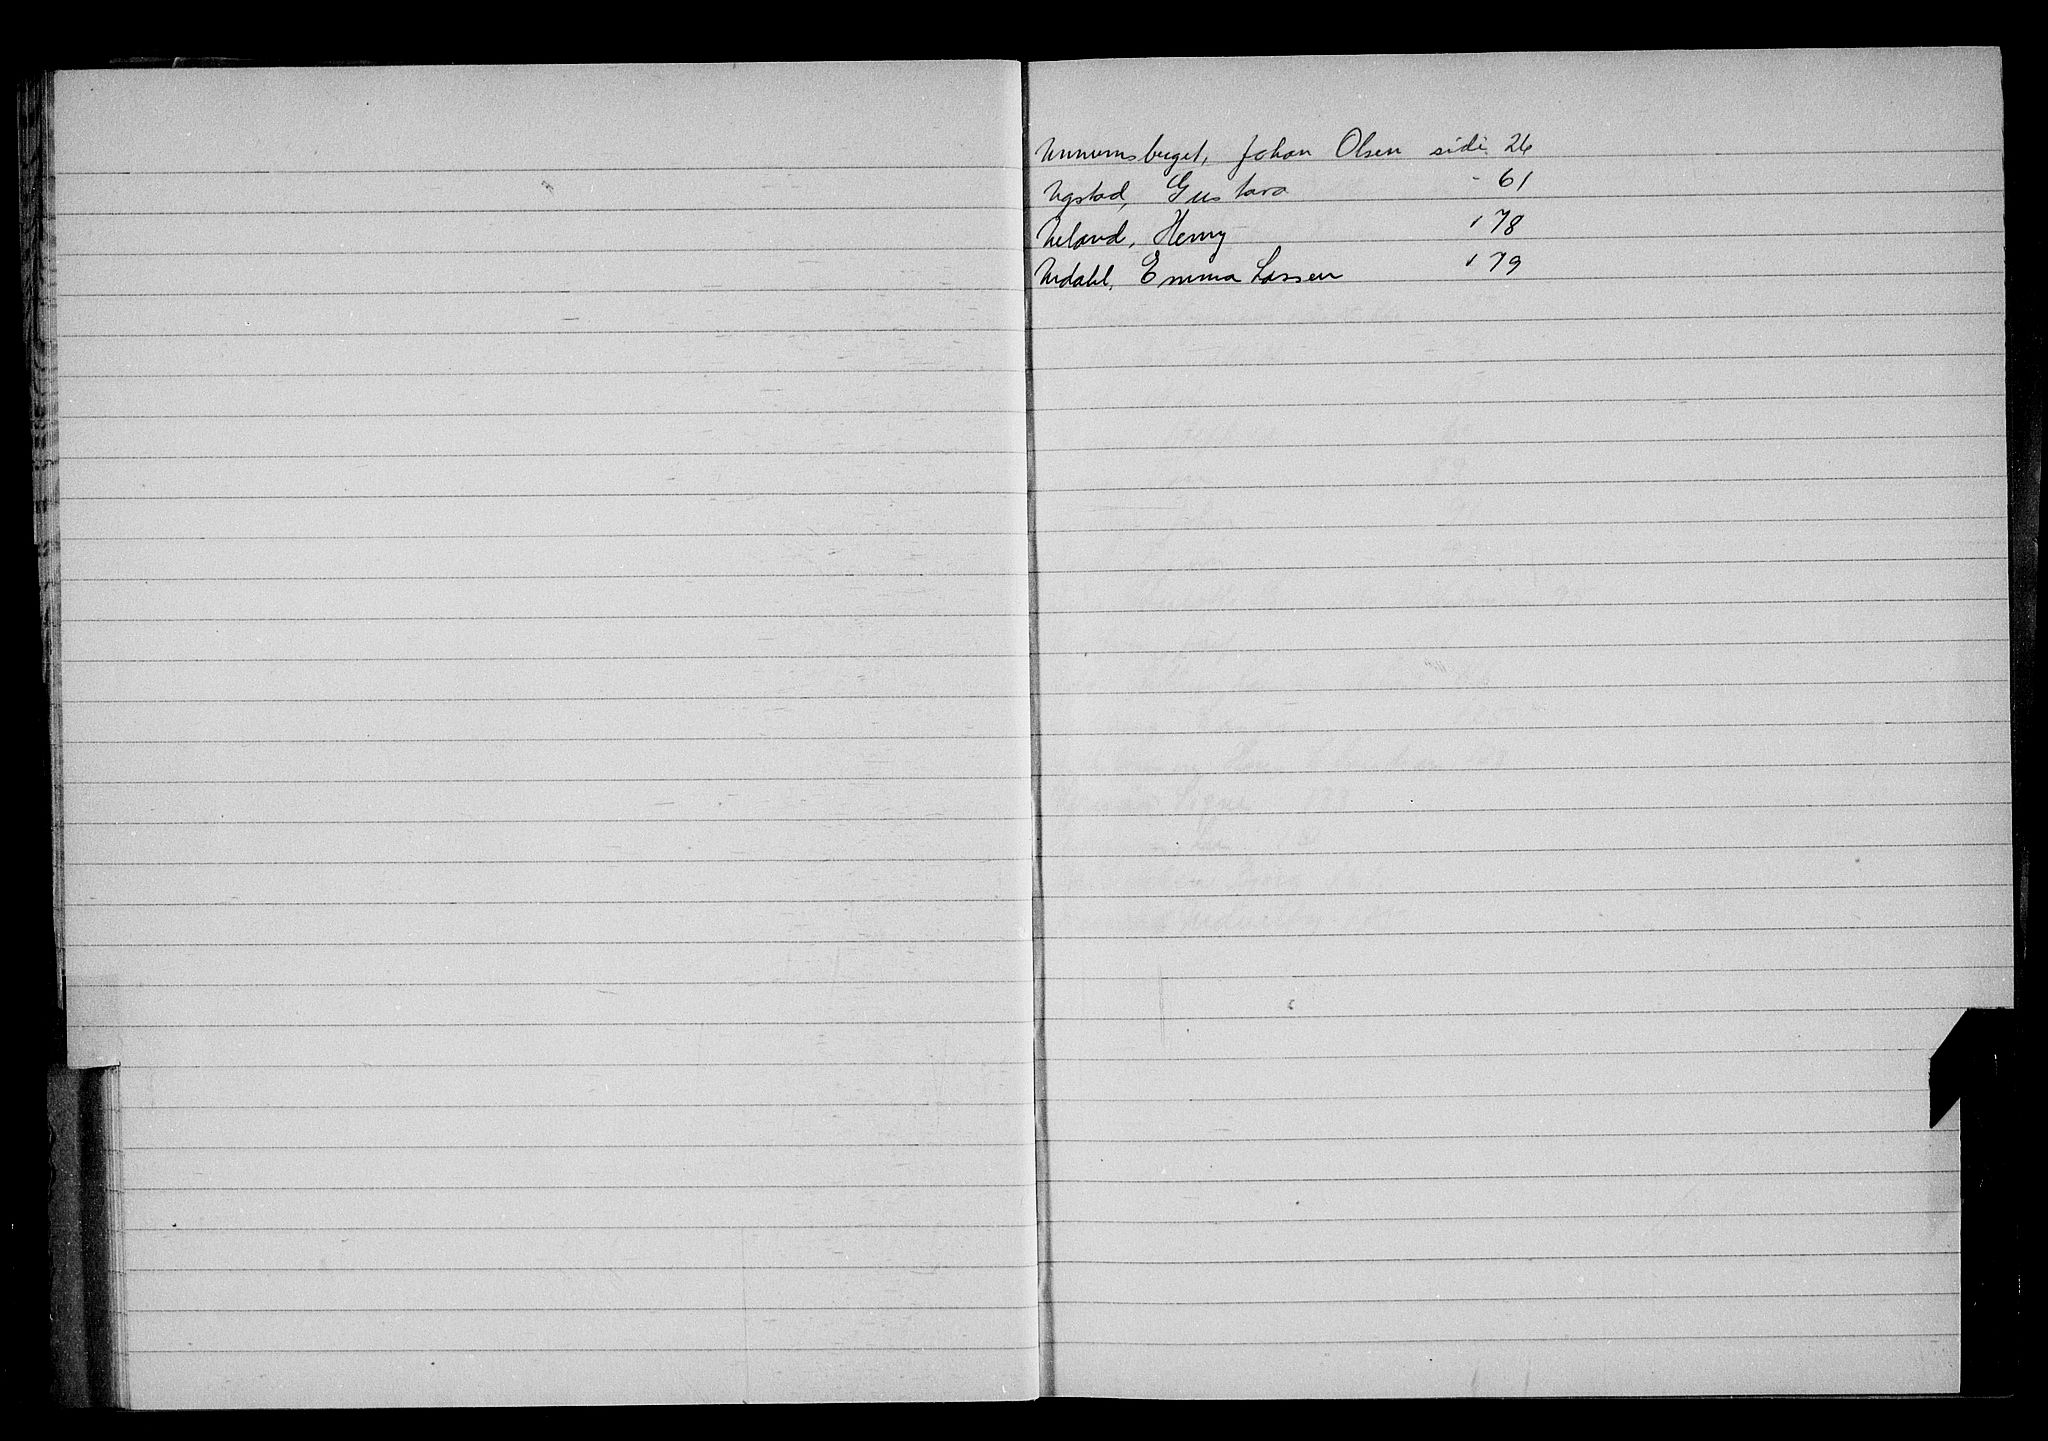 Unnumsberget, Johan Olsen side 26
Ugstad, Gustava - 61
Ueland, Henry ' 78
Urdahl, Emma Lassen ' 79